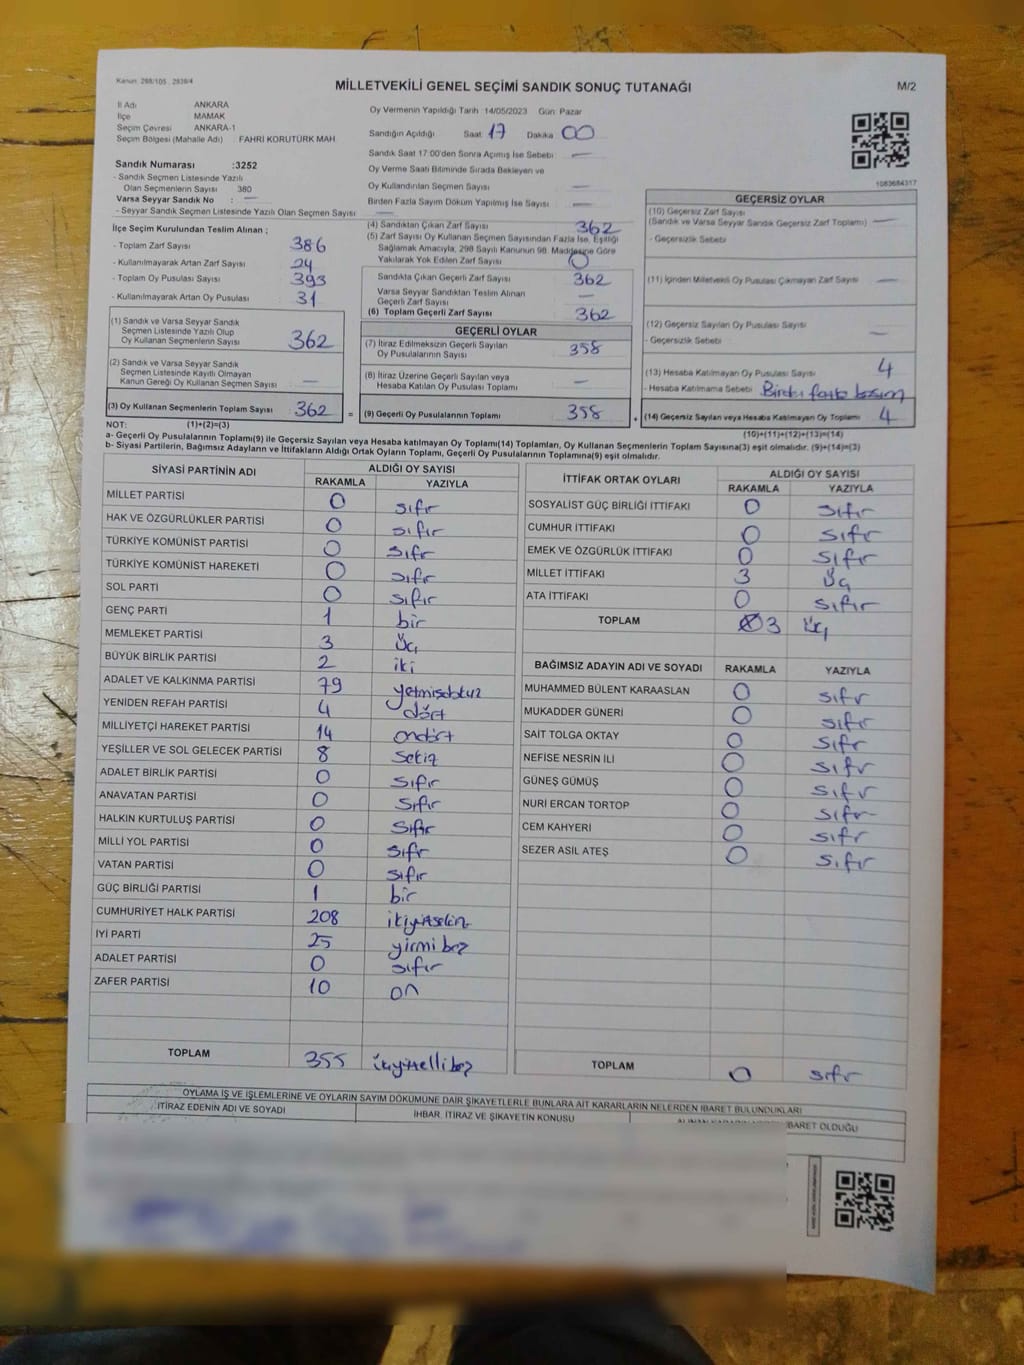 Kanun: 298/105 , 2839/4
MİLLETVEKİLİ GENEL SEÇİMİ SANDIK SONUÇ TUTANAĞI
M/2
İl Adı ANKARA
İlçe MAMAK
Seçim Çevresi ANKARA-1
Seçim Bölgesi (Mahalle Adı) : FAHRİ KORUTÜRK MAH.
Oy Vermenin Yapıldığı Tarih 14/05/2023 Gün: Pazar
Sandığın Açıldığı Saat 17 Dakika 00
Sandık Saat 17:00'den Sonra Açımış İse Sebebi —
Oy Verme Saati Bitiminde Sırada Bekleyen ve
Oy Kullandırılan Seçmen Sayısı —
Birden Fazla Sayım Döküm Yapılmış İse Sayısı —
1083684317
Sandık Numarası :3252
- Sandık Seçmen Listesinde Yazılı
Olan Seçmenlerin Sayısı 380
Varsa Seyyar Sandık No : —
- Seyyar Sandık Seçmen Listesinde Yazılı Olan Seçmen Sayısı —
İlçe Seçim Kurulundan Teslim Alınan ;
- Toplam Zarf Sayısı 386
- Kullanılmayarak Artan Zarf Sayısı 24
- Toplam Oy Pusulası Sayısı 393
- Kullanılmayarak Artan Oy Pusulası 31
(1) Sandık ve Varsa Seyyar Sandık
Seçmen Listesinde Yazılı Olup
Oy Kullanan Seçmenlerin Sayısı 362
(2) Sandık ve Varsa Seyyar Sandık
Seçmen Listesinde Kayıtlı Olmayan
Kanun Gereği Oy Kullanan Seçmen Sayısı —
(3) Oy Kullanan Seçmenlerin Toplam Sayısı 362 =
(4) Sandıktan Çıkan Zarf Sayısı 362
(5) Zarf Sayısı Oy Kullanan Seçmen Sayısından Fazla İse, Eşitliği
Sağlamak Amacıyla, 298 Sayılı Kanunun 98. Maddesine Göre
Yakılarak Yok Edilen Zarf Sayısı 0
Sandıkta Çıkan Geçerli Zarf Sayısı 362
Varsa Seyyar Sandıktan Teslim Alınan
Geçerli Zarf Sayısı —
(6) Toplam Geçerli Zarf Sayısı 362
GEÇERLİ OYLAR
(7) İtiraz Edilmeksizin Geçerli Sayılan
Oy Pusulalarının Sayısı 358
(8) İtiraz Üzerine Geçerli Sayılan veya
Hesaba Katılan Oy Pusulası Toplamı —
(9) Geçerli Oy Pusulalarının Toplamı 358 +
GEÇERSİZ OYLAR
(10) Geçersiz Zarf Sayısı
(Sandık ve Varsa Seyyar Sandık Geçersiz Zarf Toplamı) —
- Geçersizlik Sebebi
(11) İçinden Milletvekili Oy Pusulası Çıkmayan Zarf Sayısı —
(12) Geçersiz Sayılan Oy Pusulası Sayısı —
- Geçersizlik Sebebi
(13) Hesaba Katılmayan Oy Pusulası Sayısı 4
- Hesaba Katılmama Sebebi Birden fazla basım
(14) Geçersiz Sayılan veya Hesaba Katılmayan Oy Toplamı 4
NOT: (1)+(2)=(3)
(10)+(11)+(12)+(13)=(14)
a- Geçerli Oy Pusulasının Toplamı(9) ile Geçersiz Sayılan veya Hesaba katılmayan Oy Toplamı(14) Toplamları, Oy Kullanan Seçmenlerin Toplam Sayısına(3) eşit olmalıdır. (9)+(14)=(3)
b- Siyasi Partilerin, Bağımsız Adayların ve İttifakların Aldığı Ortak Oyların Toplamı, Geçerli Oy Pusulalarının Toplamına(9) eşit olmalıdır.
SİYASİ PARTİNİN ADI ALDIĞI OY SAYISI
RAKAMLA YAZIYLA
MİLLET PARTİSİ 0 sıfır
HAK VE ÖZGÜRLÜKLER PARTİSİ 0 sıfır
TÜRKİYE KOMÜNİST PARTİSİ 0 sıfr
TÜRKİYE KOMÜNİST HAREKETİ 0 sıfır
SOL PARTİ 0 sıfır
GENÇ PARTİ 1 bir
MEMLEKET PARTİSİ 3 üç
BÜYÜK BİRLİK PARTİSİ 2 iki
ADALET VE KALKINMA PARTİSİ 79 yetmişdokuz
YENİDEN REFAH PARTİSİ 4 dört
MİLLİYETÇİ HAREKET PARTİSİ 14 ondört
YEŞİLLER VE SOL GELECEK PARTİSİ 8 sekiz
ADALET BİRLİK PARTİSİ 0 sıfır
ANAVATAN PARTİSİ 0 sıfır
HALKIN KURTULUŞ PARTİSİ 0 sıfır
MİLLİ YOL PARTİSİ 0 sıfr
VATAN PARTİSİ 0 sıfır
GÜÇ BİRLİĞİ PARTİSİ 1 bir
CUMHURİYET HALK PARTİSİ 208 ikiyüzsekiz
İYİ PARTİ 25 yirmi beş
ADALET PARTİSİ 0 sıfır
ZAFER PARTİSİ 10 on
TOPLAM 355 üçyüzellibeş
İTTİFAK ORTAK OYLARI ALDIĞI OY SAYISI
RAKAMLA YAZIYLA
SOSYALİST GÜÇ BİRLİĞİ İTTİFAKI 0 sıfır
CUMHUR İTTİFAKI 0 sıfır
EMEK VE ÖZGÜRLÜK İTTİFAKI 0 sıfır
MİLLET İTTİFAKI 3 üç
ATA İTTİFAKI 0 sıfır
TOPLAM 3 üç
BAĞIMSIZ ADAYIN ADI VE SOYADI RAKAMLA YAZIYLA
MUHAMMED BÜLENT KARAASLAN 0 sıfır
MUKADDER GÜNERİ 0 sıfır
SAİT TOLGA OKTAY 0 sıfr
NEFİSE NESRİN İLİ 0 sıfr
GÜNEŞ GÜMÜŞ 0 sıfır
NURİ ERCAN TORTOP 0 sıfır
CEM KAHYERİ 0 sıfır
SEZER ASİL ATEŞ 0 sıfır
TOPLAM 0 sıfır
OYLAMA İŞ VE İŞLEMLERİNE VE OYLARIN SAYIM DÖKÜMÜNE DAİR ŞİKAYETLERLE BUNLARA AİT KARARLARIN NELERDEN İBARET BULUNDUKLARI
İTİRAZ EDENİN ADI VE SOYADI İHBAR, İTİRAZ VE ŞİKAYETİN KONUSU İBARET OLDUĞU